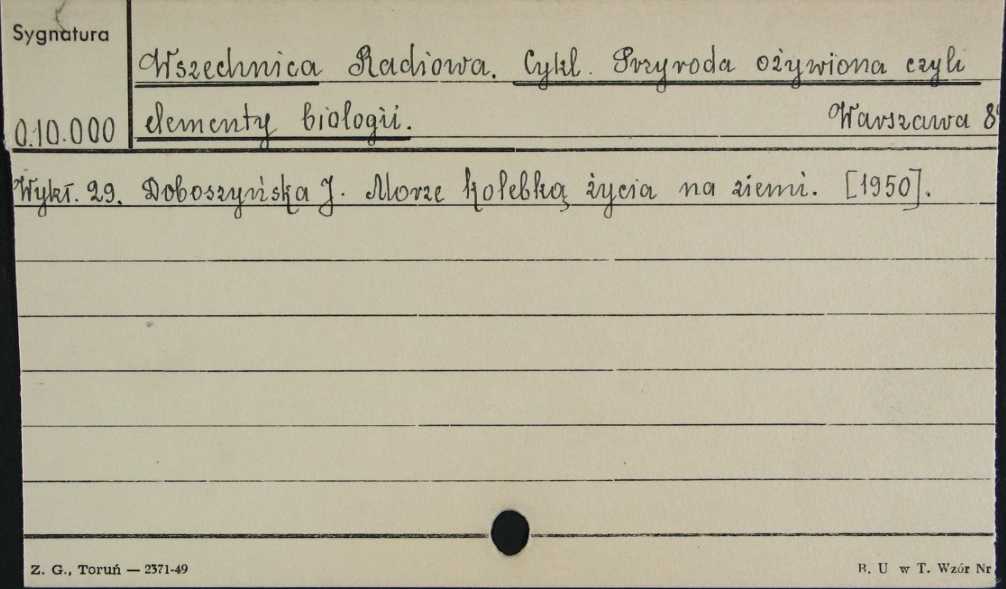 Sygnatura
Wszechnica Radiowa. Cykl. Przyroda ożywiona czyli
010.000 elementy biologii. Warszawa 8°
Wykł. 29. Doboszyńska J. Morze kolebką życia na ziemi. [1950].
Z. G., Toruń — 2371-49 B. U w T. Wzór Nr